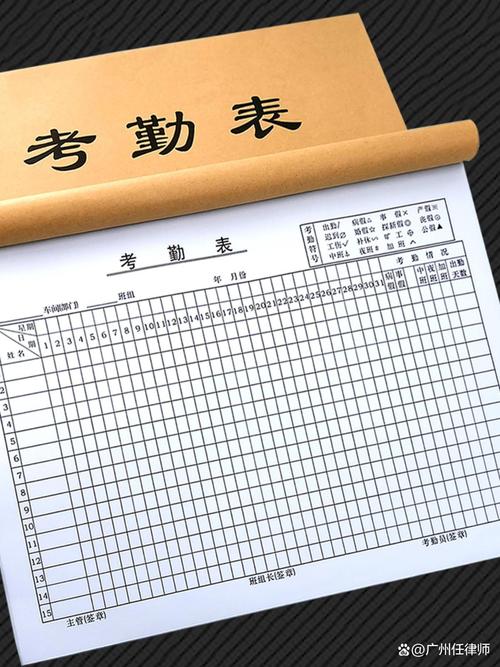 考勤表
考勤表
考勤符号
出勤/ 病假△ 事假× 产假※
迟到∅ 婚假☆ 探亲假◎ 丧假⊙
工伤✓ 补休〰 旷工 公假▲
中班⊥ 夜班 加班∧
车间(部门) 班组 年 月份
星期 日期 姓名
1 2 3 4 5 6 7 8 9 10 11 12 13 14 15 16 17 18 19 20 21 22 23 24 25 26 27 28 29 30 31
考勤情况
病假 事假 中班 夜班 加班 出勤天数
1
2
3
4
5
6
7
8
9
10
11
12
13
14
15
主管(签章) 班组长(签章) 考勤员(签章)
广州任律师